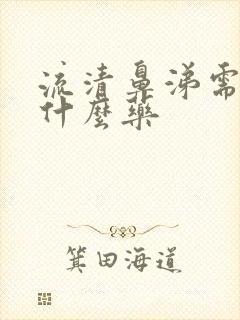 流清鼻涕需
什麼藥
箕田海道